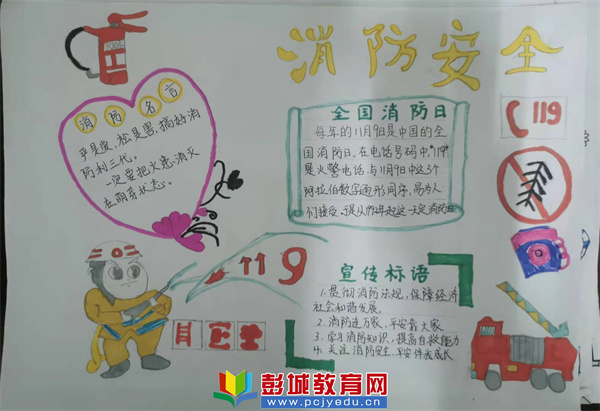 消防安全
消防名言
平是良,松是患,搞好消
防利三代。
一定要把火患消灭
在萌芽状态。
全国消防日
每年的11月9日是中国的全
国消防日。在电话号码中,"119"
是火警电话与11月9日中这3个
阿拉伯数字 形同序,易为人
们接受, 一天定消防日
119
119
宣传标语
1. 贯彻消防法规,保障经济
社会和谐发展。
2. 消防连万家,平安靠大家
3. 学习消防知识,提高自救能力
4. 关注消防安全,平安伴我成长
彭城教育网
www.pcjyedu.cn